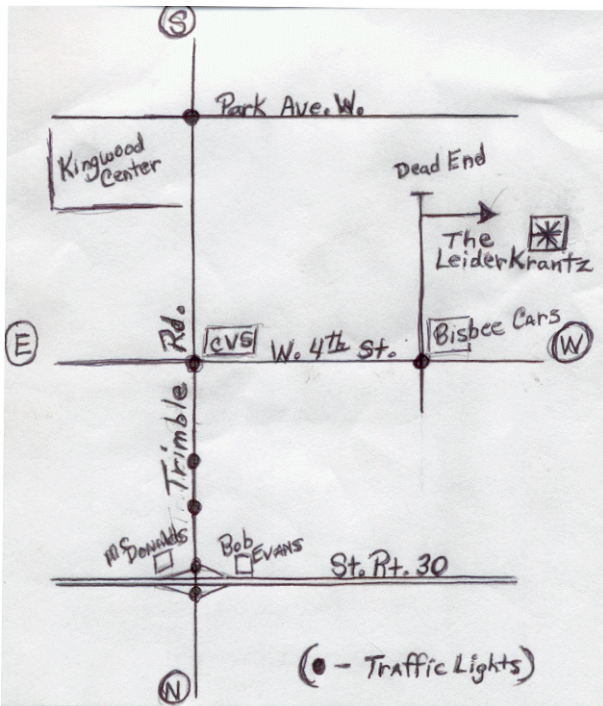 S
Park Ave. W.
Kingwood
Center
Dead End
The
LeiderKrantz
E
Trimble Rd.
CVS
W. 4th St.
Bisbee Cars
W
McDonalds
Bob
Evans
St. Rt. 30
N
(● - Traffic Lights)